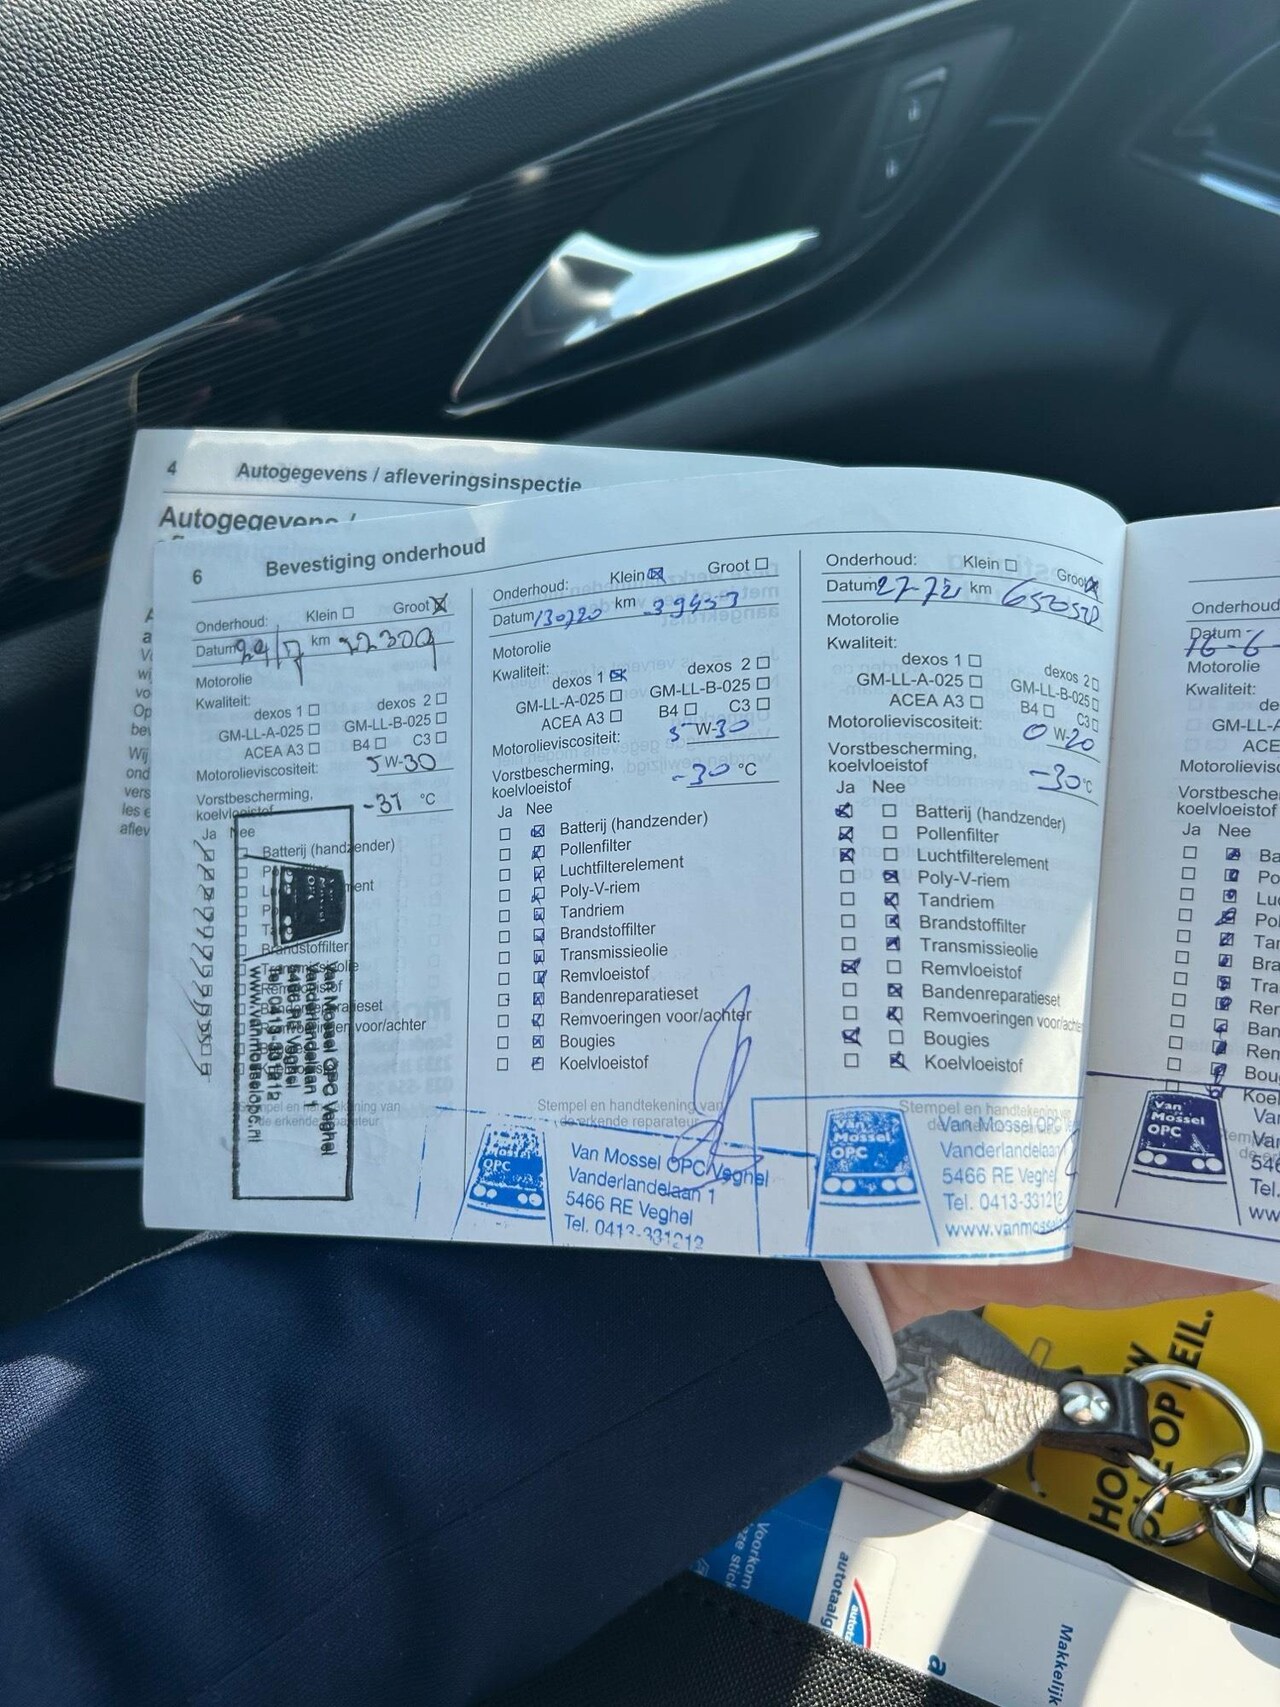 4 Autogegevens / afleveringsinspectie
Autogegevens /
6 Bevestiging onderhoud
Onderhoud: Klein Groot
Datum km 22309
Motorolie
Kwaliteit:
dexos 1 dexos 2
GM-LL-A-025 GM-LL-B-025
ACEA A3 B4 C3
Motorolieviscositeit: 5 W-30
Vorstbescherming,
koelvloeistof -37 °C
Ja Nee
Batterij (handzender)
Brandstoffilter
Transmissieolie
Remvoeringen voor/achter
Van Mossel OPC
Van Mossel OPC Veghel
Vanderlandelaan 1
5466 RE Veghel
Tel. 0413-331212
www.vanmosselopc.nl
Onderhoud: Klein Groot
Datum 130720 km 39453
Motorolie
Kwaliteit:
dexos 1 dexos 2
GM-LL-A-025 GM-LL-B-025
ACEA A3 B4 C3
Motorolieviscositeit: 5 W-30
Vorstbescherming,
koelvloeistof -30 °C
Ja Nee
Batterij (handzender)
Pollenfilter
Luchtfilterelement
Poly-V-riem
Tandriem
Brandstoffilter
Transmissieolie
Remvloeistof
Bandenreparatieset
Remvoeringen voor/achter
Bougies
Koelvloeistof
Stempel en handtekening van
de erkende reparateur
Mossel
OPC
Van Mossel OPC Veghel
Vanderlandelaan 1
5466 RE Veghel
Tel. 0413-331212
Onderhoud: Klein Groot
Datum km
Motorolie
Kwaliteit:
dexos 1 dexos 2
GM-LL-A-025 GM-LL-B-025
ACEA A3 B4 C3
Motorolieviscositeit: 0 W-20
Vorstbescherming,
koelvloeistof -30 °C
Ja Nee
Batterij (handzender)
Pollenfilter
Luchtfilterelement
Poly-V-riem
Tandriem
Brandstoffilter
Transmissieolie
Remvloeistof
Bandenreparatieset
Remvoeringen voor/achter
Bougies
Koelvloeistof
Stempel en handtekening van
Van
Mossel
OPC
Van Mossel OPC
Vanderlandelaan
5466 RE Veghel
Tel. 0413-331212
www.vanmossel
Onderhoud
Datum 16-6-
Motorolie
Kwaliteit:
de
GM-LL-
ACE
Motorolievisc
Vorstbescher
koelvloeistof
Ja Nee
Ba
Po
Luc
Pol
Tar
Bra
Tra
Rer
Ban
Rem
Boug
Koel
Van
Mossel
OPC
Van
546
Tel.
ww
Voorkom
autotaalg
Makkelijk